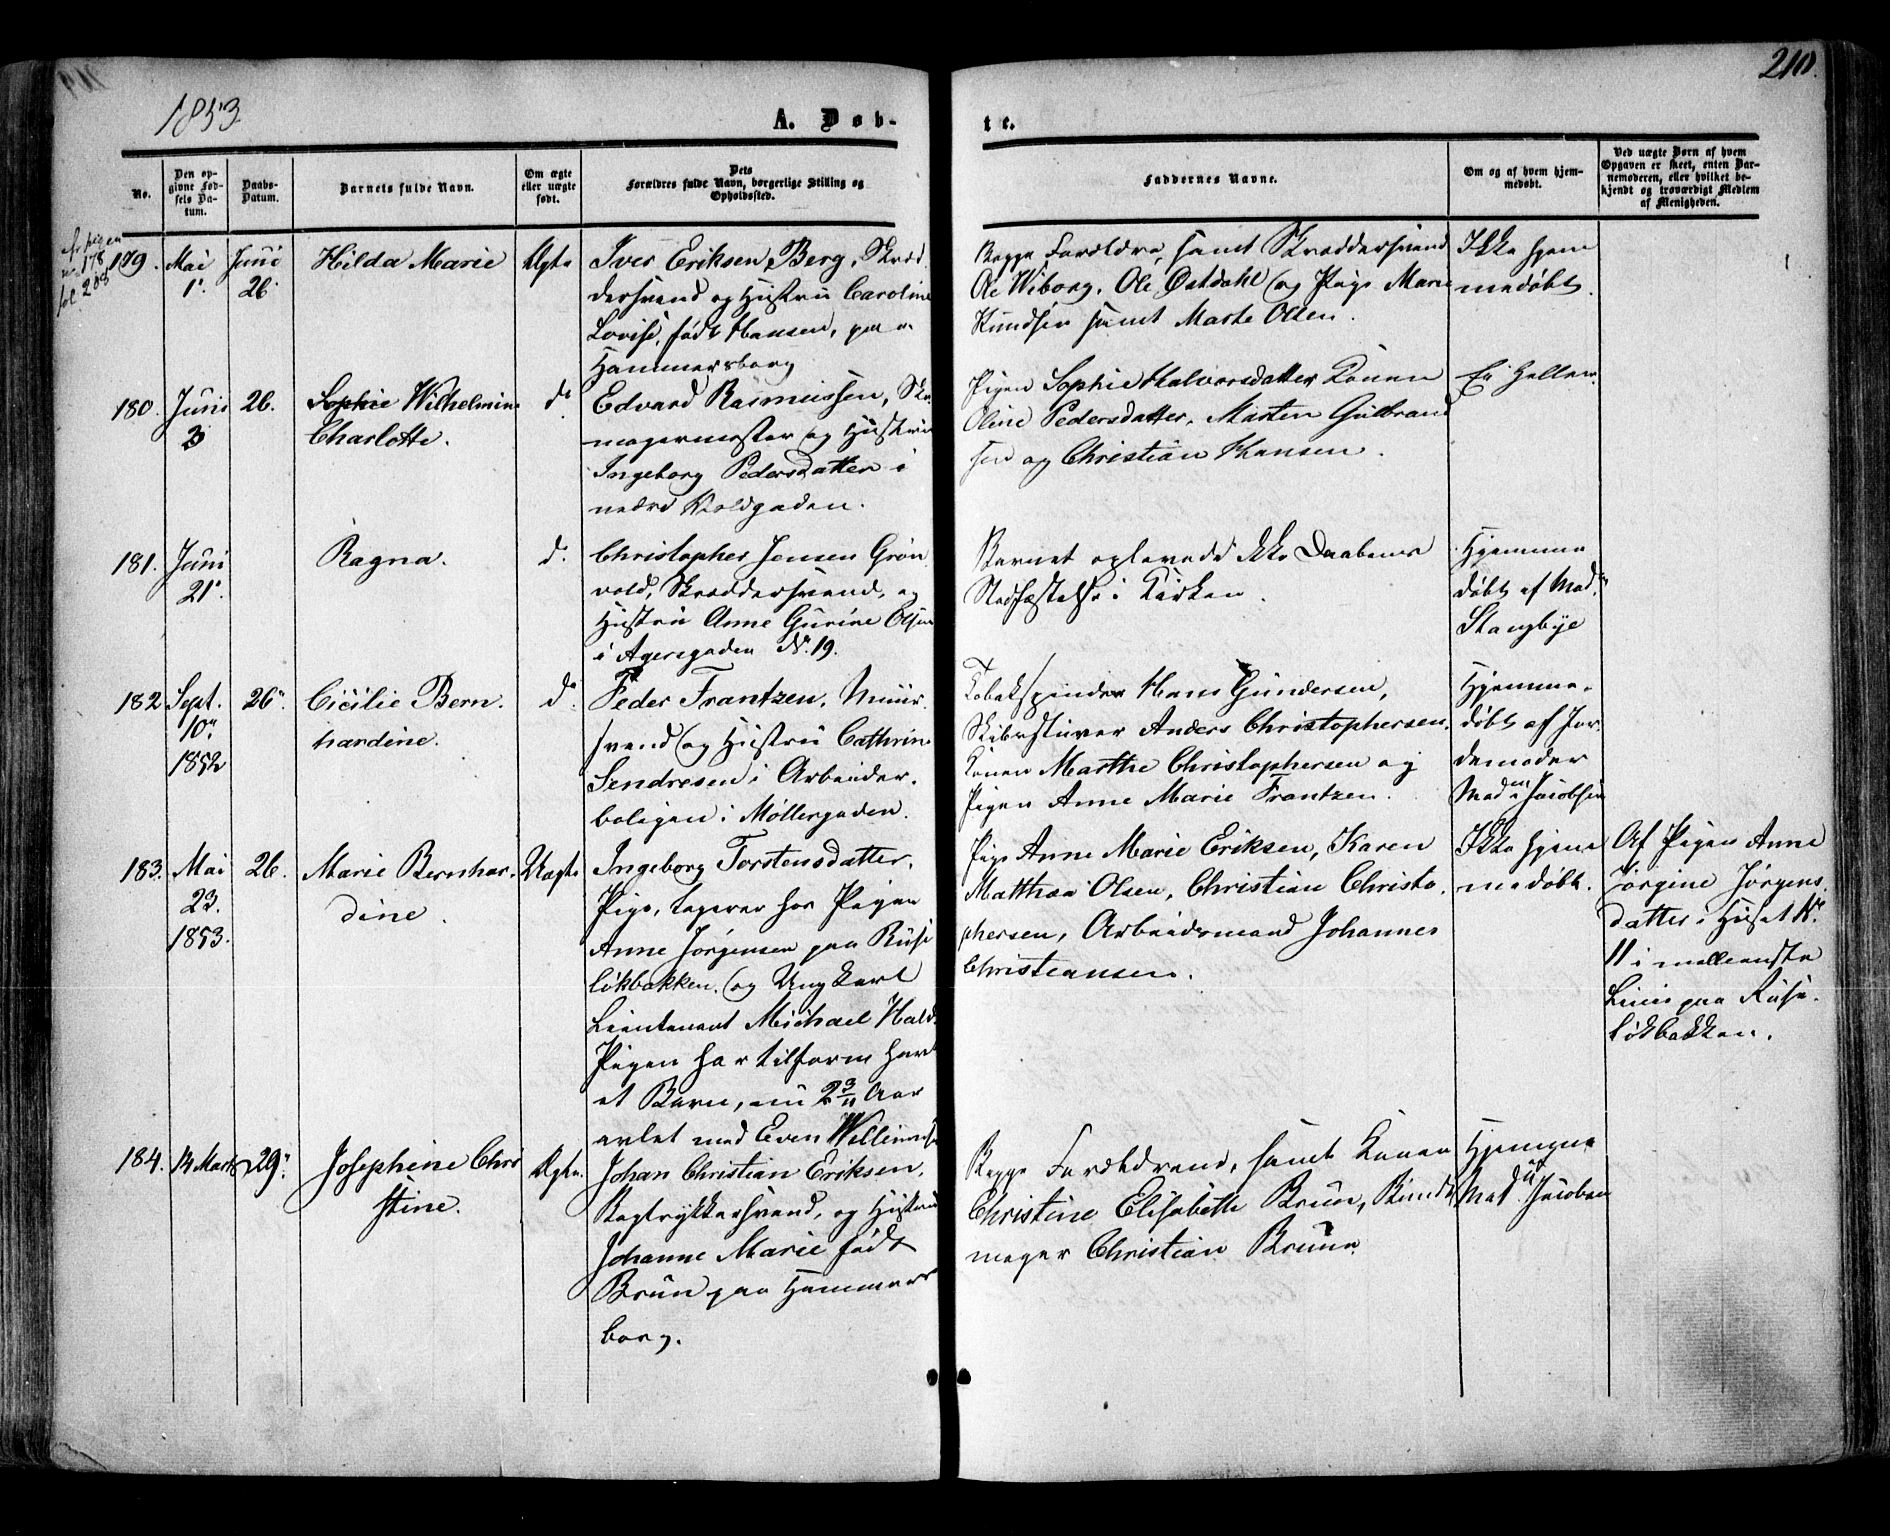 1853
A. Døb-
te.
210.
No.
Den op-
givne Fød-
sels Da-
tum.
Daabs-
Datum.
Barnets fulde Navn.
Om ægte
eller uægte
født.
Dets
Forældres fulde Navn, borgerlige Stilling og
Opholdssted.
Faddernes Navne.
Om og af hvem hjem-
medøbt.
Ved uægte Børn af hvem
Opgaven er skeet, enten Bar-
nemoderen, eller hvilket be-
kjendt og troværdigt Medlem
af Menigheden.
No. 178
fol. 208
179.
Mai
1.
Juni
26
Hilda Marie
Ægte
Iver Eriksen Berg, Skræd
dersvend og Hustru Caroline
Lovise, født Hansen, paa
Hammersborg
Begge Forældre, samt Skræddersvend
Ole Wiborg, Ole Østdahl og Pige Marie
Knudsen samt Marte Olsen.
Ikke hjem
medøbt.
180.
Juni
3
26.
Sophie Wilhelmine
Charlotte.
do
Edvard Rasmussen, Sko
magermester og Hustru
Ingeborg Pedersdatter i
nedre Voldgaden.
Pigen Sophie Halvorsdatter Konen
Oline Pedersdatter, Marten Gulbrand
sen og Christian Hansen.
Ei heller.
181.
Juni
21.
Ragna.
d.
Christopher Jensen Grøn
vold, Skræddersvend, og
Hustru Anne Gurine Olsen
i Agersgaden No. 19.
Barnet oplevede ikke Daabens
Stadfæstelse i Kirken.
Hjemme
døbt af Mad.
Stangbye
182
Sept.
10.
1852
26.
Cicilie Bern
hardine.
d.
Peder Frantzen, Muur
svend og Hustru Cathrine
Sendresen i Arbeider-
boligen i Møllergaden.
Tobakspinder Hans Gundersen,
Skibsstuver Anders Christophersen.
Konen Marthe Christophersen og
Pigen Anne Marie Frantzen.
Hjemme-
døbt af Jor-
demoder
Mad. Jacobsen
183.
Mai
23.
1853.
26.
Marie Bernhar-
dine.
Uægte
Ingeborg Torstensdatter,
Pige, logerer hos Pigen
Anne Jørgensen paa Ruse
løkbakken, og Ungkarl
Lieutenant Michael Hald.
Pigen har tilforn havt
et Barn, nu 2 3/11 Aar
avlet med Even Wellumsen
Pige Anne Marie Eriksen, Karen
Matthea Olsen, Christian Christo-
phersen, Arbeidsmand Johannes
Christiansen.
Ikke hjem
medøbt.
Af Pigen Anne
Jørgine Jørgens
datter i Huset No.
11 i mellemste
Linie paa Ruse-
løkbakken.
184.
14 Marts
29.
Josephine Chri
stine.
Ægte.
Johan Christian Eriksen,
Bogtrykkersvend, og Hustru
Johanne Marie født
Bruun paa Hammers
borg.
Begge Forældrene, samt Konen
Christine Elisabeth Bruun, Bundt
mager Christian Bruun
Hjemme
Mad. Jacobsen